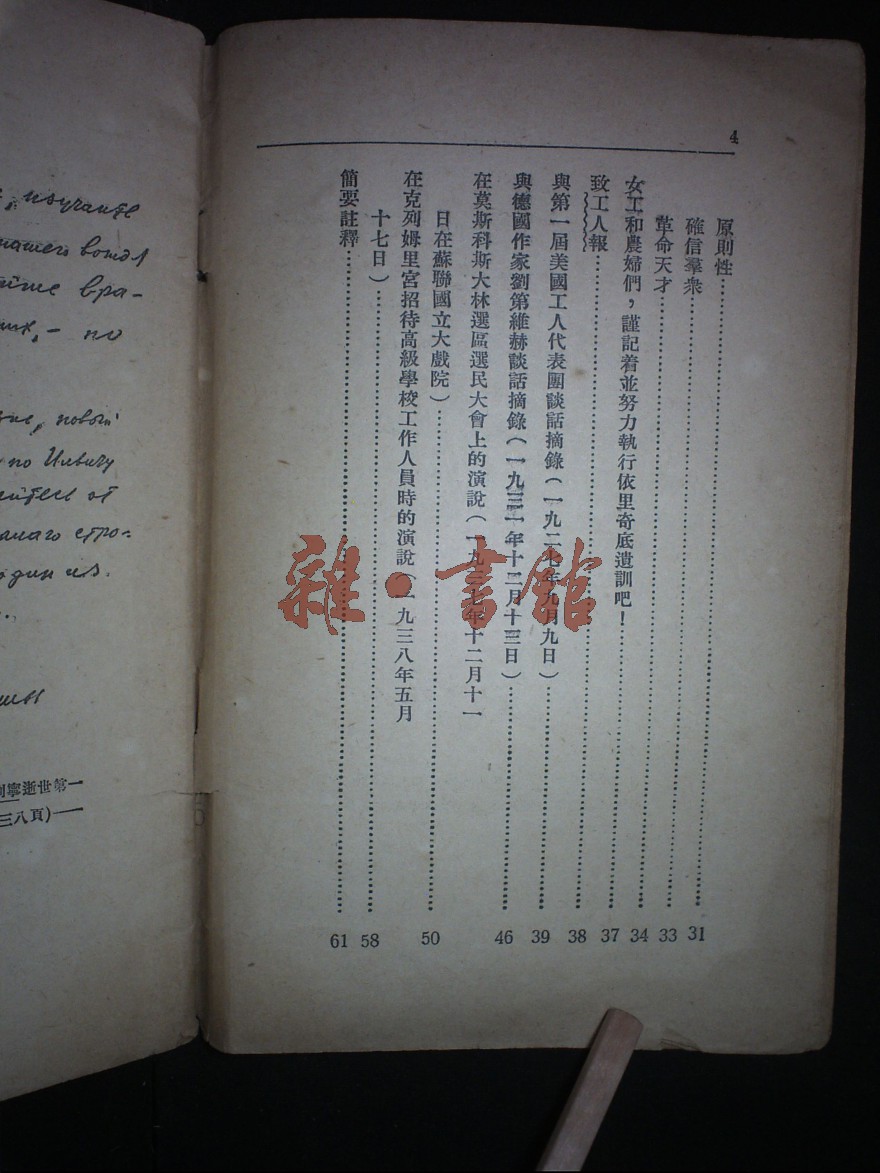 4
原則性……31
確信羣衆……33
革命天才……34
女工和農婦們，謹記着並努力執行依里奇底遺訓吧！……37
致工人報……38
與第一屆美國工人代表團談話摘錄(一九二七年九月九日)……39
與德國作家劉第維赫談話摘錄(一九三一年十二月十三日)……46
在莫斯科斯大林選區選民大會上的演說(一九三七年十二月十一
日在蘇聯國立大戲院)……50
在克列姆里宮招待高級學校工作人員時的演說(一九三八年五月
十七日)……58
簡要註釋……61
雜·書館
изучайте
нашего вождя
вра-
по
новый
по Ильичу
строе-
один из
寧逝世第一
三八頁)—